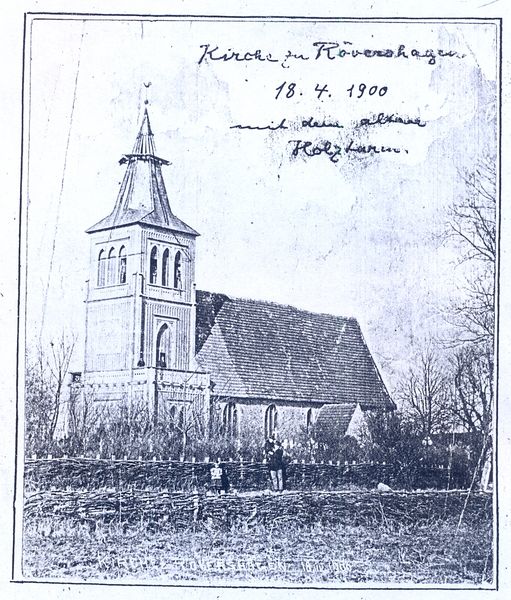 Kirche zu Rövershagen.
18. 4. 1900
mit dem alten
Holzturm.
KIRCHE RÖVERSHAGEN